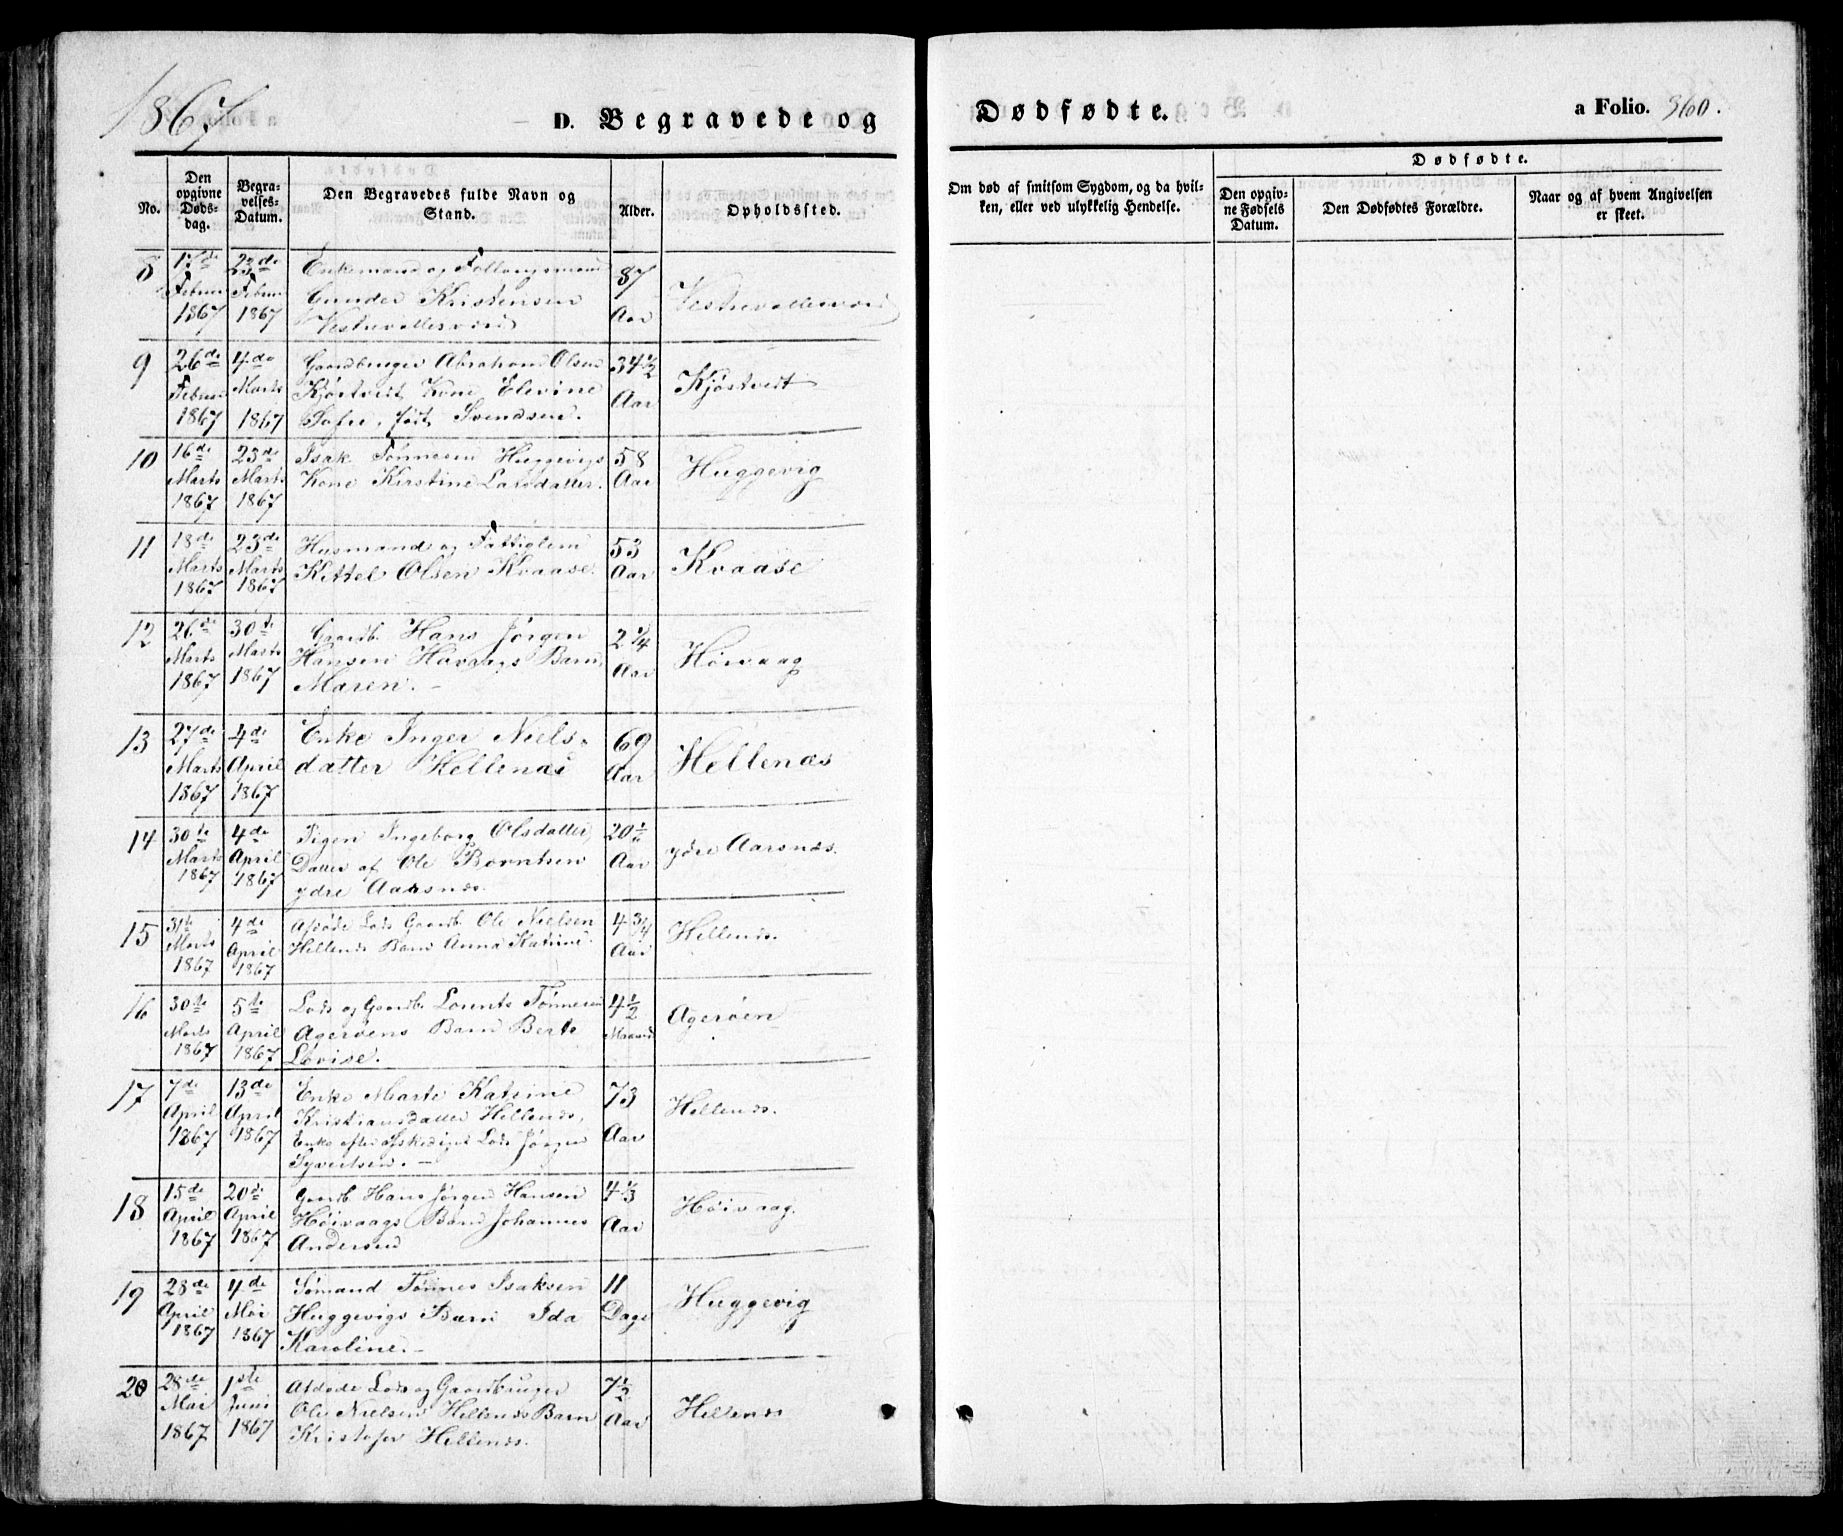 1867
D. Begravede og Dødfødte. a Folio. 360.
No.
Den opgivne Døds-dag.
Begra-velses-Datum.
Den Begravedes fulde Navn og Stand.
Alder.
Opholdssted.
Om død af smitsom Sygdom, og da hvil-ken, eller ved ulykkelig Hendelse.
Dødfødte.
Den opgiv-ne Fødsels Datum.
Den Dødfødtes Forældre.
Naar og af hvem Angivelsen er skeet.
8 17de 23de Enkemand og 87
Februar Februar Gunder Kristensen Aar
1867 1867
9 26de 4de Gaardbruger Abraham Olsen 34 1/2 Kjøstvedt
Februar Marts Kjøstvedt Kone Elevine Aar
1867 1867 Sofie, født Svendsen.
10 16de 23de Isak Tønnesen Huggevigs 58 Huggevig
Marts Marts Kone Kirstine Larsdatter. Aar
1867 1867
11 18de 23de Husmand og Fattiglem 53 Kvaase
Marts Marts Kittel Olsen Kvaase. Aar
1867 1867
12 26de 30te Gaardb. Hans Jørgen 2 1/4
Marts Marts Hansen Barn Aar
1867 1867 Maren. —
13 27de 4de Enke Inger Niels- 69 Hellenæs
Marts April datter Hellenæs Aar
1867 1867
14 30te 4de Pigen Ingeborg Olsdatter, 20 ydre Aarsnæs.
Marts April Datter af Ole Berntsen Aar
1867 1867 ydre Aarsnæs.
15 31te 4de Afdøde Lods Gaardb. Ole Nielsen 4 3/4 Hellenæs.
Marts April Hellenæs Barn Anna Katrine. Aar
1867 1867
16 30te 5te Lods og Gaardb. Lorents Tønnesen 4 1/2 Agerøen
Marts April Agerøens Barn Berte Maaned
1867 1867 Lovise.
17 7de 13de Enke Marte Katrine 73 Hellenæs.
April April Kristiansdatter Hellenæs, Aar
1867 1867 Enke efter afskediget Lods Jørgen
Syvertsen. —
18 15de 20de Gaardb. Hans Jørgen Hansen 4 1/3 Høivaag.
April April Høivaags Barn Johannes Aar
1867 1867 Andersen
19 28de 4de Sømand Tønnes Isaksen 11 Huggevig
April Mai Huggevigs Barn Ida Dage
1867 1867 Karoline. —
20 28de 1ste Afdøde Lods og Gaardbruger 7 1/2 Hellenæs
Mai Juni Ole Nielsen Hellenæs Barn Aar
1867 1867 Kristofer Hellenæs.